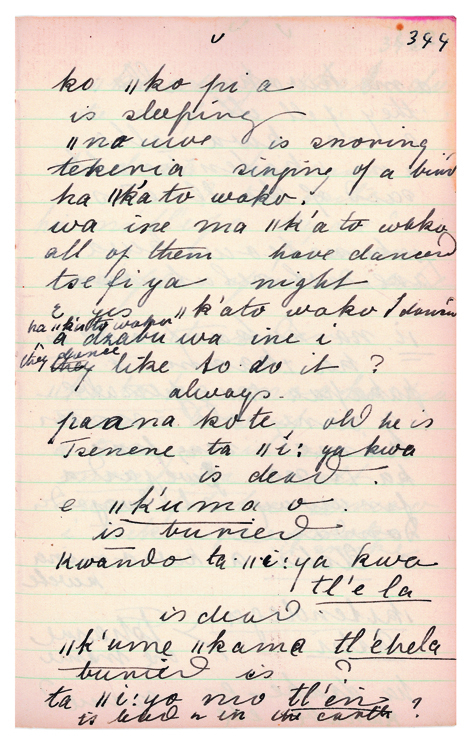 v 344
ko ǁko pi a
is sleeping
is snoring
tekeria singing of a bird
ha ǁk'a to wako.
wa ine ma ǁk'a to wako
all of them have danced
tse fi ya night
E yes ǁk'ato wako I dancin
ha ǁk'a to wako
a dzabu wa ine i
they dance
they like to do it ?
always.
paana kote, old he is
Tsenene ta ǁi: ya kwa
is dead.
e ǁk'uma o.
is buried
Kwando ta ǁi: ya kwa
tl'e la
is dead
ǁk'ume ǁkama tl'ehela
buried is ?
ta ǁi: ya mo tl'en ?
is dead in the earth